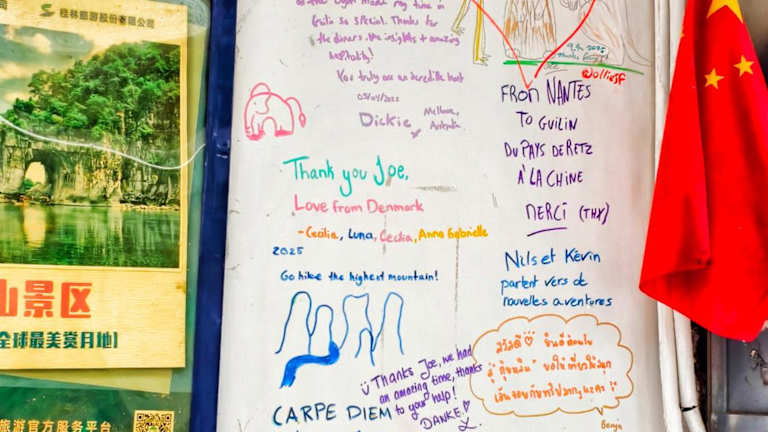 桂林旅游股份有限公司
山景区
全球最美赏月地
旅游官方服务平台
the light made my time in
Guilin so special. Thanks for
the dinners, the insights + amazing
hospitality!
You truly are an incredible host
Dickie
Melbourne,
Australia
Thank you Joe,
Love from Denmark
- Cecilia, Luna, Cecilia, Anna Gabrielle
2025
Go hike the highest mountain!
CARPE DIEM
Thanks Joe, we had
an amazing time, thanks
to your help!
DANKE
2025
@olliesf
FROM NANTES
TO GUILIN
DU PAYS DE RETZ
À LA CHINE
MERCI (THX)
Nils et Kévin
partent vers de
nouvelles aventures
สวัสดี ยินดีต้อนรับ
สู่ "กุ้ยหลิน" ขอให้เที่ยวให้สนุก
Benja